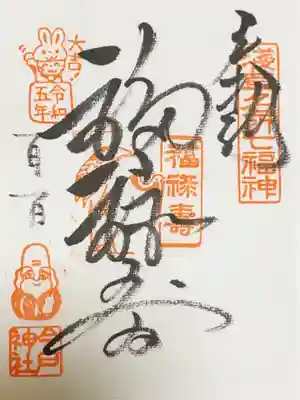 奉拝
淺草名所七福神
福禄寿
福禄寿
大吉
令和五年
一月一日
今戸神社